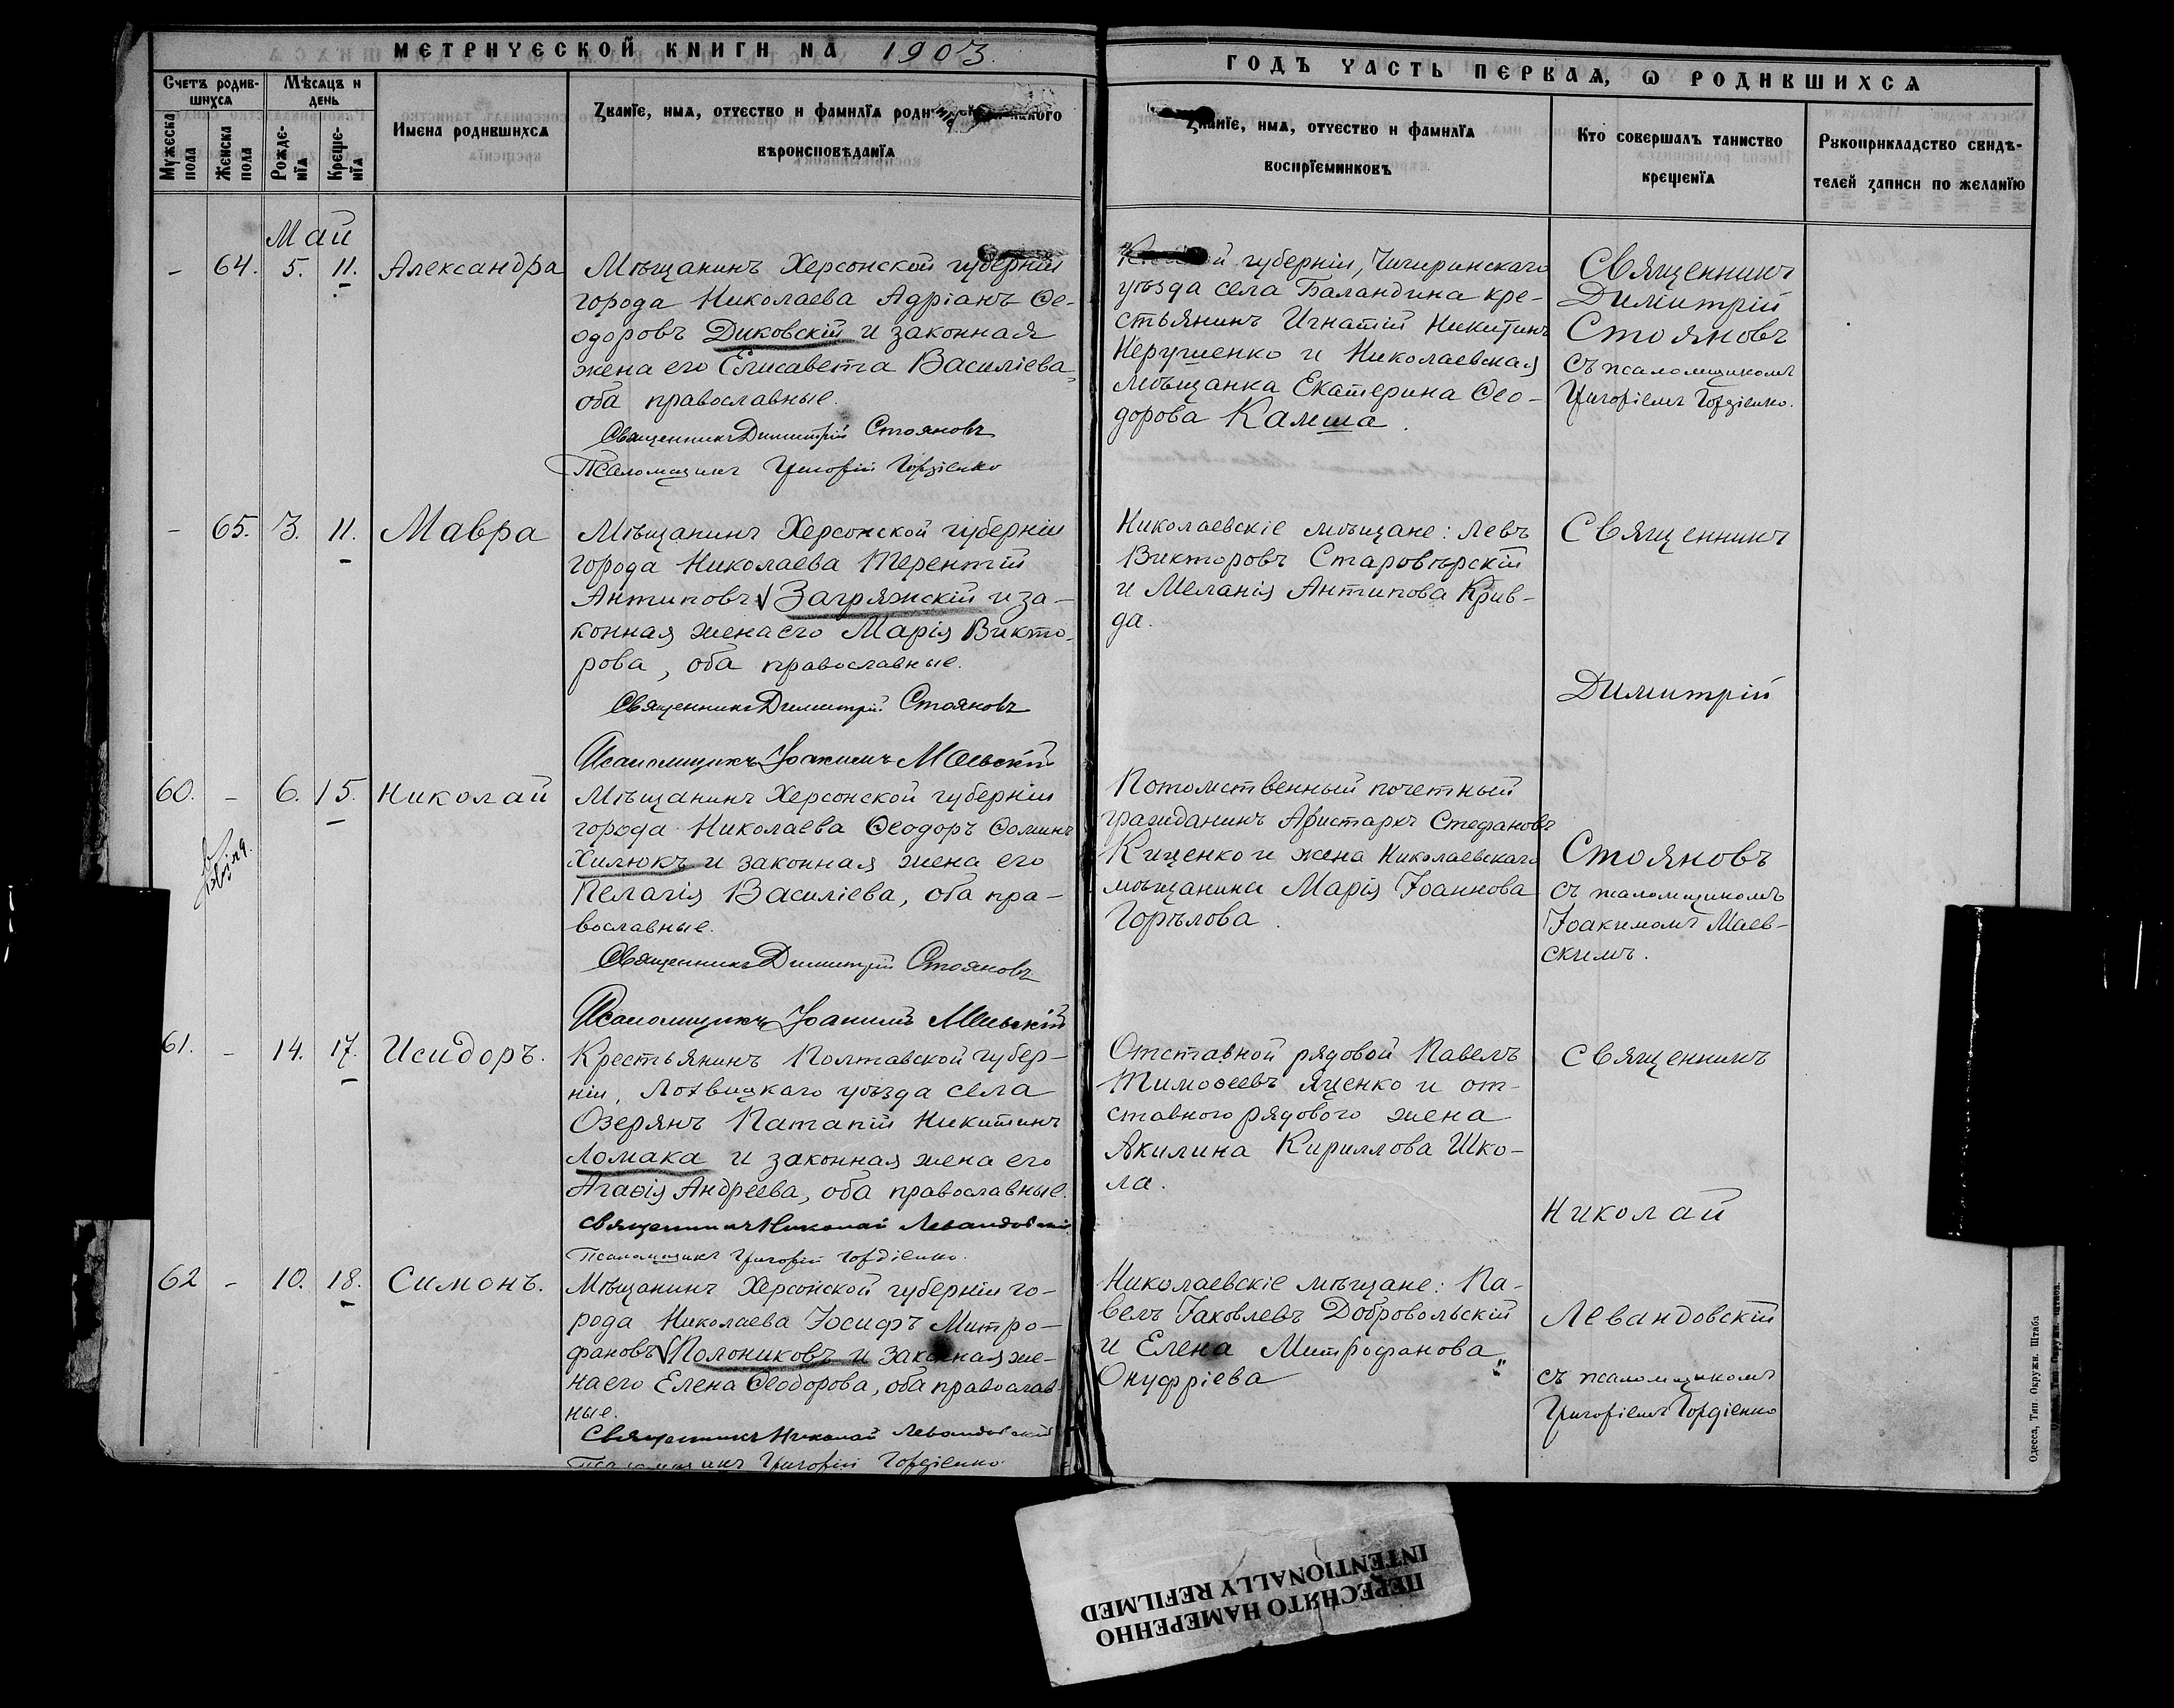 МЕТРИЧЕСКОЙ КНИГИ НА 1903.
Счетъ родившихся
Мѣсяцъ и день
Мужеска пола
Женска пола
Рожденія
Крещенія
Имена родившихся
Званіе, имя, отчество и фамилія
вѣроисповѣданія
Май
- 64. 5. 11. Александра
Мѣщанинъ Херсонской губерніи
города Николаева Адріанъ Ѳе-
одоровъ Диковскій и законная
жена его Елисавета Василіева,
оба православные.
Священникъ Димитрій Стояновъ
Псаломщикъ Григорій Гордіенко
- 65. 3. 11. Мавра
Мѣщанинъ Херсонской губерніи
города Николаева Терентій
Антиповъ Загряжскій и за-
конная жена его Марія Викто-
рова, оба православные.
Священникъ Димитрій Стояновъ
Псаломщикъ Іоакимъ Маевскій
60. - 6. 15. Николай
Мѣщанинъ Херсонской губерніи
города Николаева Ѳеодоръ Ѳоминъ
Хилюкъ и законная жена его
Пелагія Василіева, оба пра-
вославные.
Священникъ Димитрій Стояновъ
Псаломщикъ Іоакимъ Маевскій
61. - 14. 17. Исидоръ.
Крестьянинъ Полтавской губер-
ніи, Лохвицкаго уѣзда села
Озерянъ Патапій Никитинъ
Ломака и законная жена его
Агаѳія Андреева, оба православные.
Священникъ Николай Левандовскій
Псаломщикъ Григорій Гордіенко.
62 - 10. 18. Симонъ.
Мѣщанинъ Херсонской губерніи го-
рода Николаева Іосифъ Митро-
фановъ Полониковъ и законная же-
на его Елена Ѳеодорова, оба православ-
ные.
Священникъ Николай Левандовскій
Псаломщикъ Григорій Гордіенко.
ГОДЪ ЧАСТЬ ПЕРВАЯ, Ѡ РОДИВШИХСЯ
Званіе, имя, отчество и фамилія
воспріемниковъ
Кто совершалъ таинство
крещенія
Рукоприкладство свидѣ-
телей записи по желанію
губерніи, Чигиринскаго
уѣзда села Баландина кре-
стьянинъ Игнатій Никитинъ
Нерушенко и Николаевская
мѣщанка Екатерина Ѳео-
дорова Камша.
Священникъ
Димитрій
Стояновъ
съ псаломщикомъ
Григоріемъ Гордіенко.
Николаевскіе мѣщане: Левъ
Викторовъ Старовѣрскій
и Меланія Антипова Крив-
да.
Священникъ
Димитрій
Потомственный почетный
гражданинъ Аристархъ Стефановъ
Киценко и жена Николаевскаго
мѣщанина Марія Іоаннова
Горѣлова.
Стояновъ
съ псаломщикомъ
Іоакимомъ Маев-
скимъ.
Отставной рядовой Павелъ
Тимоѳеевъ Яценко и от-
ставного рядового жена
Акилина Кириллова Шко-
ла.
Священникъ
Николай
Николаевскіе мѣщане: Па-
велъ Іаковлевъ Добровольскій
и Елена Митрофанова
Онуфріева
Левандовскій
съ псаломщикомъ
Григоріемъ Гордіенко
Одесса, Тип. Окружн. Штаба
ПЕРЕСНЯТО НАМЕРЕННО
INTENTIONALLY REFILMED